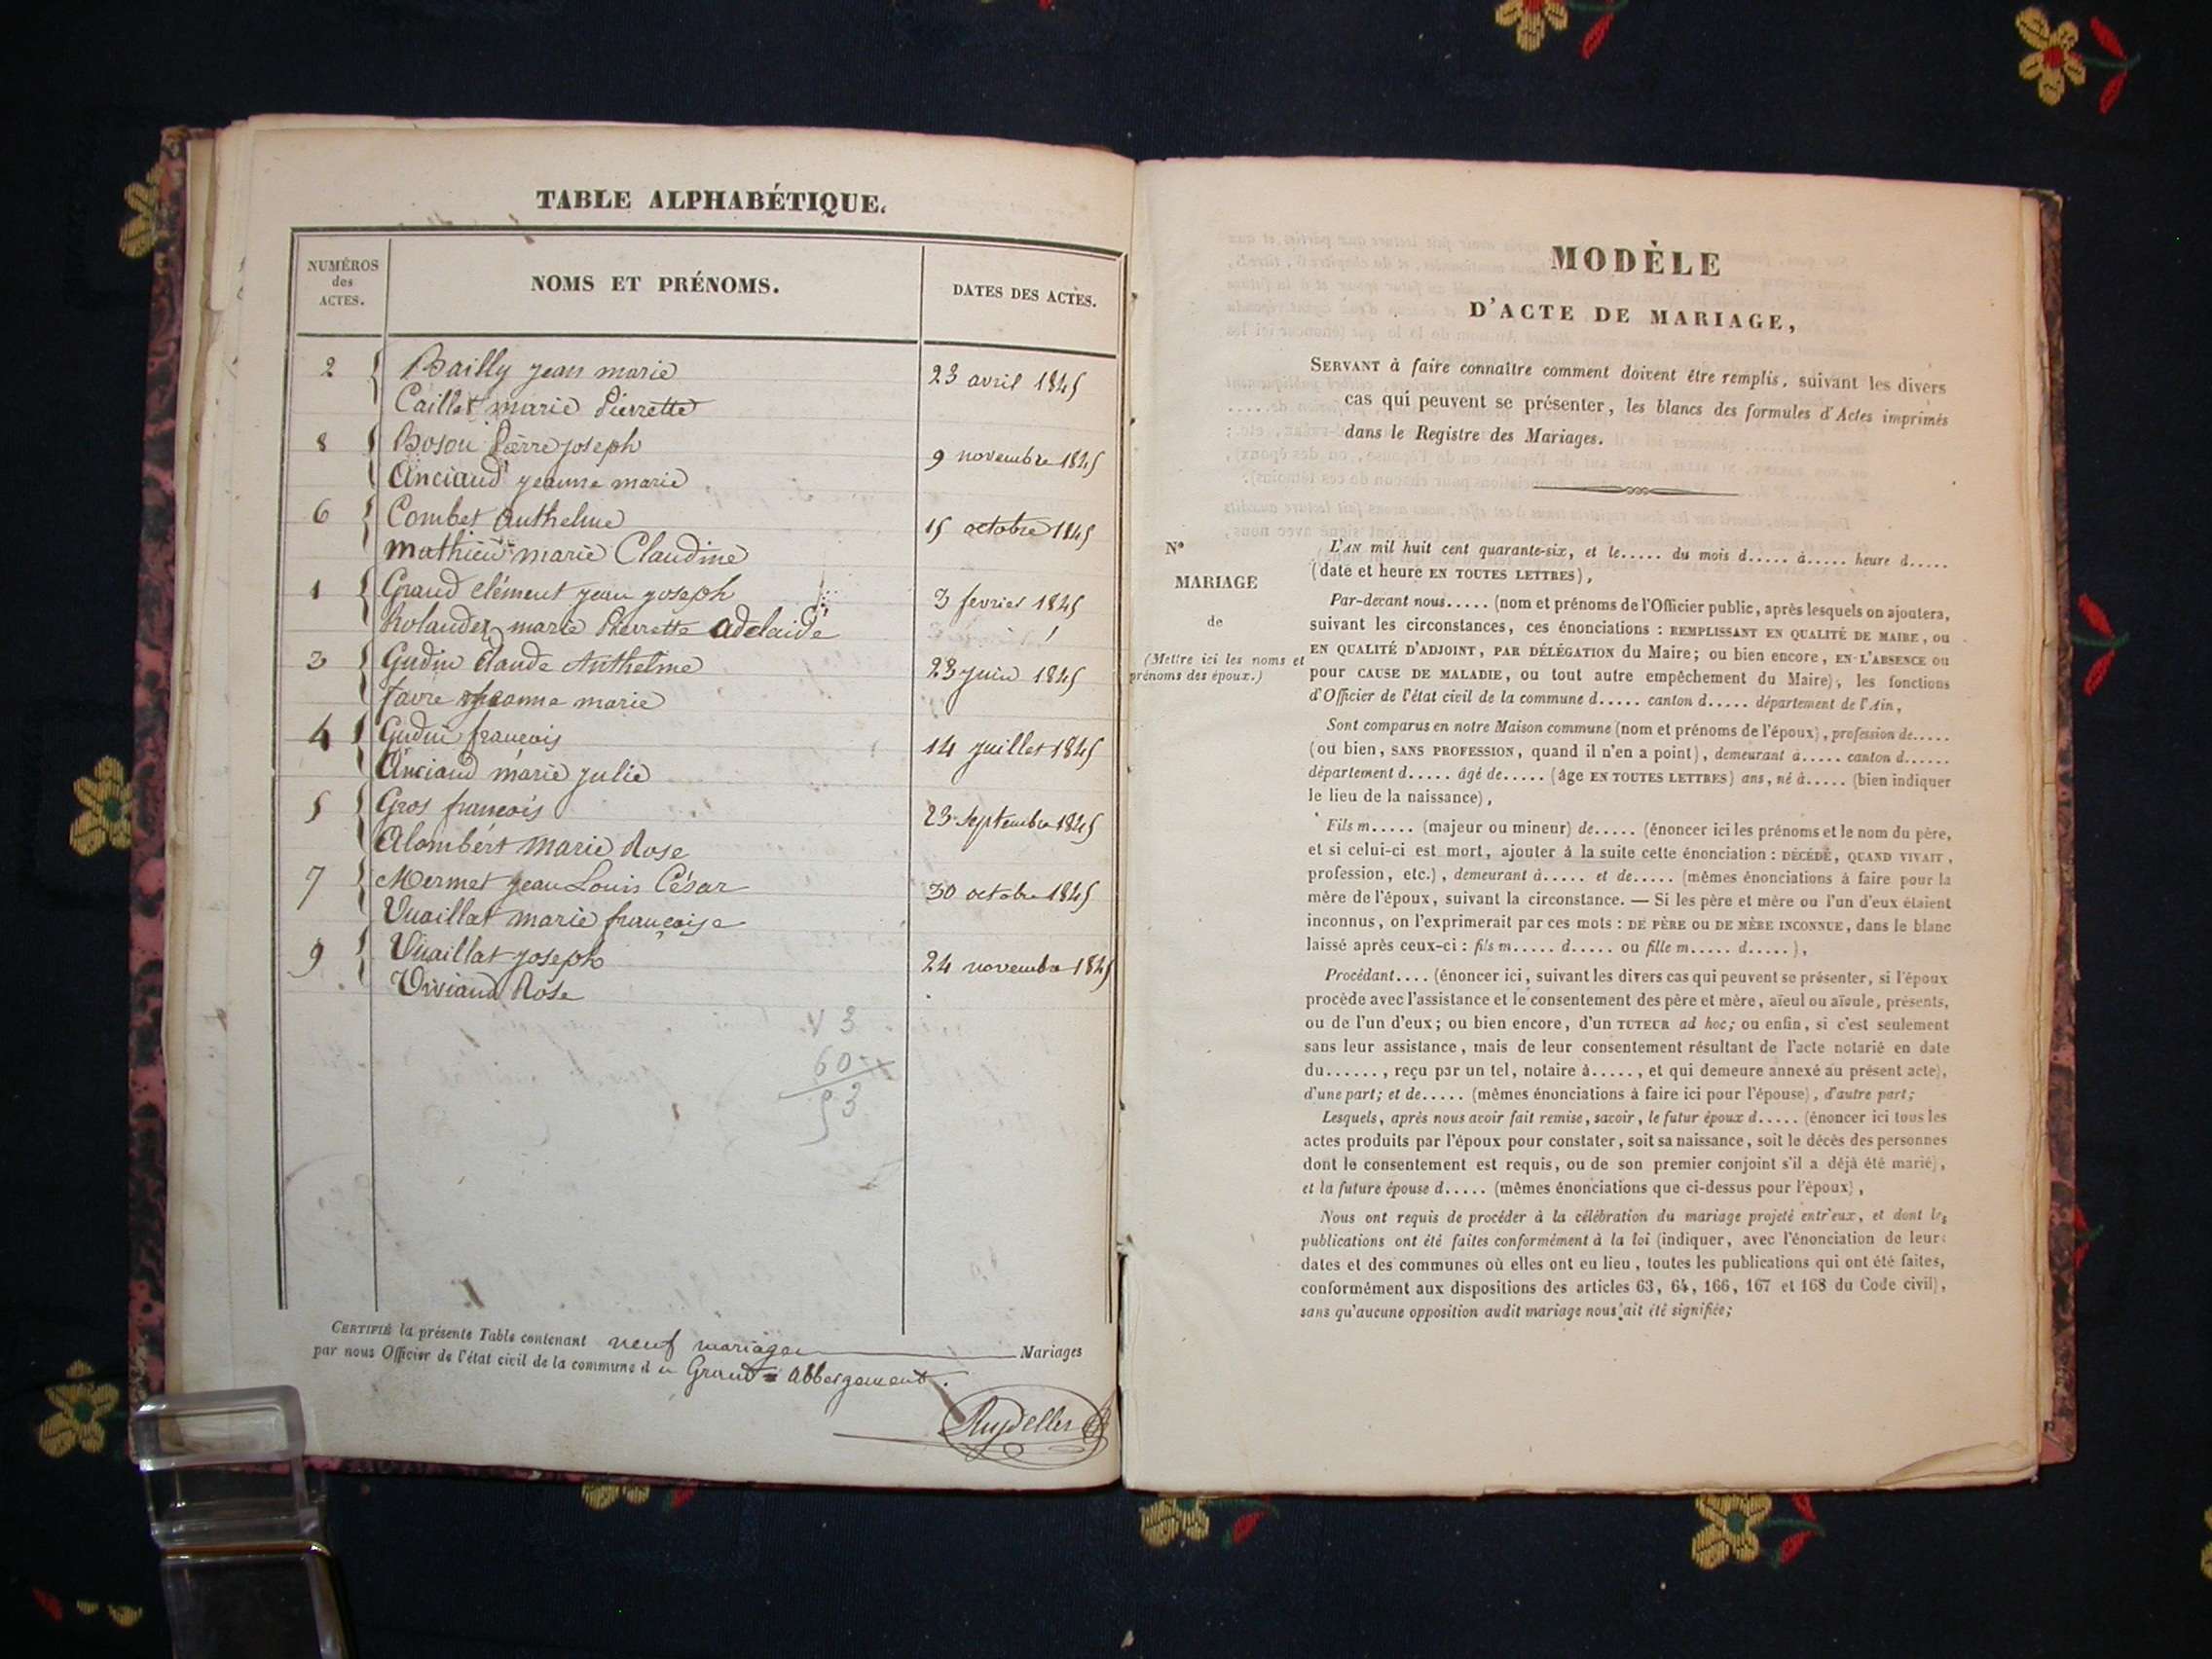 TABLE ALPHABÉTIQUE.
NUMÉROS
des
ACTES.
NOMS ET PRÉNOMS.
DATES DES ACTES.
2 Bailly jean marie 23 avril 1845
Caillet marie Pierrette
8 Pierre joseph 9 novembre 1845
Anciand jeanne marie
6 Combet Anthelme 15 octobre 1845
mathieu marie Claudine
1 Grand clément jean joseph 3 fevrier 1845
marie Pierrette adelaide
3 Gudin Claude Anthelme 23 juin 1845
favre jeanne marie
4 Gudin françois 14 juillet 1845
Anciand marie julie
5 Gros françois 23 septembre 1845
Alombert marie Rose
7 Mermet jean Louis César 30 octobre 1845
Vuaillat marie françoise
9 Vuaillat joseph 24 novembre 1845
Viviand Rose
60
53
CERTIFIÉ la présente Table contenant neuf mariages Mariages
par nous Officier de l'état civil de la commune d u Grand = abbergement.
MODÈLE
D'ACTE DE MARIAGE,
SERVANT à faire connaître comment doivent être remplis, suivant les divers
cas qui peuvent se présenter, les blancs des formules d'Actes imprimés
dans le Registre des Mariages.
N°
MARIAGE
de
(Mettre ici les noms et
prénoms des époux.)
L'AN mil huit cent quarante-six, et le..... du mois d..... à..... heure d.....
(date et heure EN TOUTES LETTRES),
Par-devant nous..... (nom et prénoms de l'Officier public, après lesquels on ajoutera,
suivant les circonstances, ces énonciations : REMPLISSANT EN QUALITÉ DE MAIRE, ou
EN QUALITÉ D'ADJOINT, PAR DÉLÉGATION du Maire; ou bien encore, EN L'ABSENCE ou
pour CAUSE DE MALADIE, ou tout autre empêchement du Maire), les fonctions
d'Officier de l'état civil de la commune d..... canton d..... département de l'Ain,
Sont comparus en notre Maison commune (nom et prénoms de l'époux), profession de.....
(ou bien, SANS PROFESSION, quand il n'en a point), demeurant à..... canton d......
département d..... âgé de..... (âge EN TOUTES LETTRES) ans, né à..... (bien indiquer
le lieu de la naissance),
Fils m..... (majeur ou mineur) de..... (énoncer ici les prénoms et le nom du père,
et si celui-ci est mort, ajouter à la suite cette énonciation : DÉCÉDÉ, QUAND VIVAIT,
profession, etc.), demeurant à..... et de..... (mêmes énonciations à faire pour la
mère de l'époux, suivant la circonstance. — Si les père et mère ou l'un d'eux étaient
inconnus, on l'exprimerait par ces mots : DE PÈRE ou DE MÈRE INCONNUE, dans le blanc
laissé après ceux-ci : fils m..... d..... ou fille m..... d..... ),
Procédant.... (énoncer ici, suivant les divers cas qui peuvent se présenter, si l'époux
procède avec l'assistance et le consentement des père et mère, aïeul ou aïeule, présents,
ou de l'un d'eux; ou bien encore, d'un TUTEUR ad hoc; ou enfin, si c'est seulement
sans leur assistance, mais de leur consentement résultant de l'acte notarié en date
du......, reçu par un tel, notaire à....., et qui demeure annexé au présent acte),
d'une part; et de..... (mêmes énonciations à faire ici pour l'épouse), d'autre part;
Lesquels, après nous avoir fait remise, savoir, le futur époux d..... (énoncer ici tous les
actes produits par l'époux pour constater, soit sa naissance, soit le décès des personnes
dont le consentement est requis, ou de son premier conjoint s'il a déjà été marié),
et la future épouse d..... (mêmes énonciations que ci-dessus pour l'époux),
Nous ont requis de procéder à la célébration du mariage projeté entr'eux, et dont les
publications ont été faites conformément à la loi (indiquer, avec l'énonciation de leurs
dates et des communes où elles ont eu lieu, toutes les publications qui ont été faites,
conformément aux dispositions des articles 63, 64, 166, 167 et 168 du Code civil),
sans qu'aucune opposition audit mariage nous ait été signifiée;